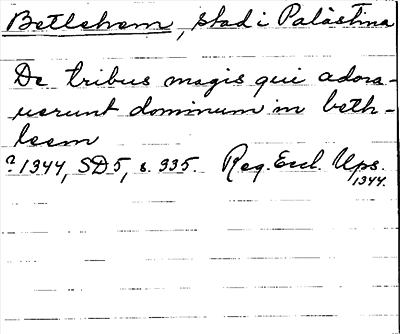 Betlehem, stad i Palästina
De tribus magis qui adora-
uerunt dominum in beth-
leem
? 1344, SD 5, s. 335. Reg. Eccl. Ups.
1344.